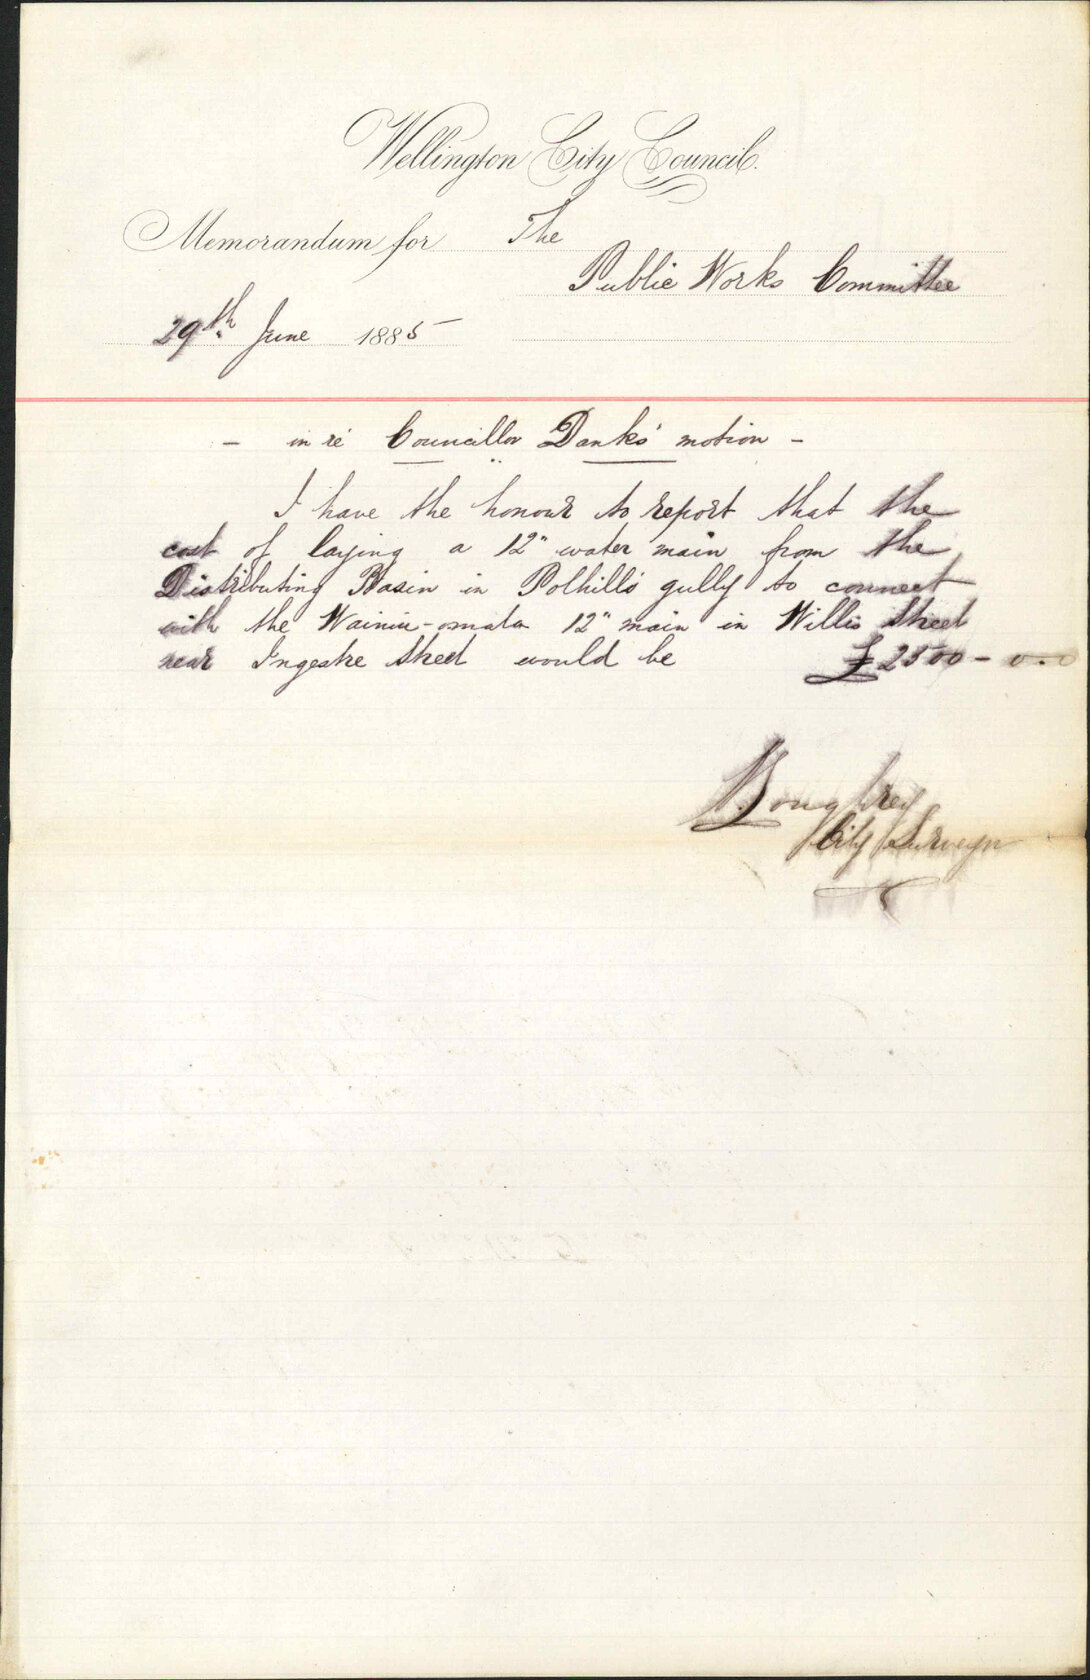 Wellington City Council.
Memorandum for The
Public Works Committee
29th June 1885
- in re Councillor Danks' motion -
I have the honour to report that the
cost of laying a 12" water main from the
Distributing Basin in Polhill's gully to connect
with the Wainui-omata 12" main in Willis Street
near Ingestre Street would be £2500-0.0
City Surveyor